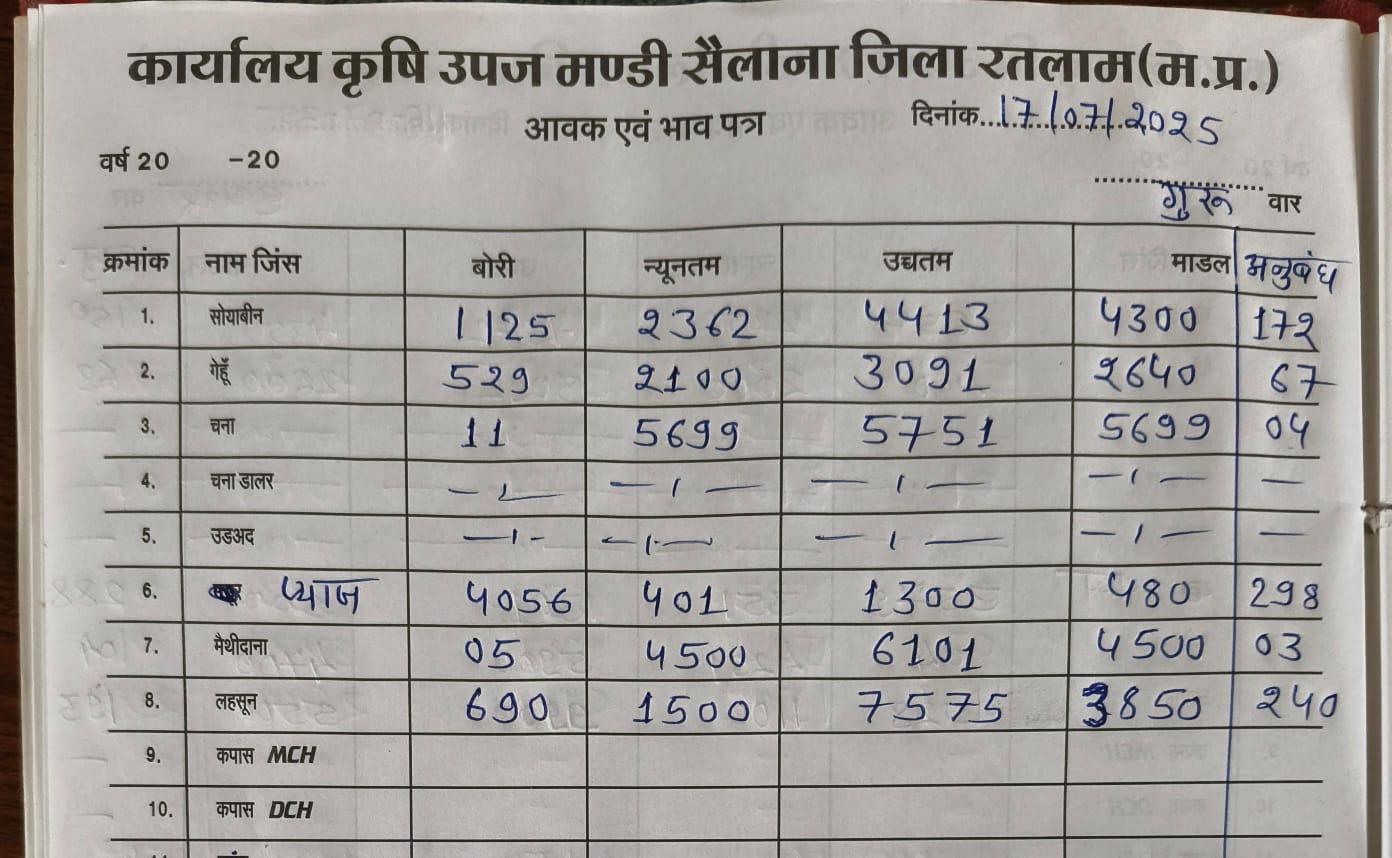 कार्यालय कृषि उपज मण्डी सैलाना जिला रतलाम(म.प्र.)
आवक एवं भाव पत्र दिनांक...17/07/2025
वर्ष 20 -20
गुरू वार
क्रमांक नाम जिंस बोरी न्यूनतम उच्चतम माडल अनुबंध
1. सोयाबीन 1125 2362 4413 4300 172
2. गेहूँ 529 2100 3091 2640 67
3. चना 11 5699 5751 5699 04
4. चना डालर — । — — । — — । — — । — —
5. उडअद — । - — । — — । — — । — —
6. प्याज 4056 401 1300 480 298
7. मैथीदाना 05 4500 6101 4500 03
8. लहसून 690 1500 7575 3850 240
9. कपास MCH
10. कपास DCH